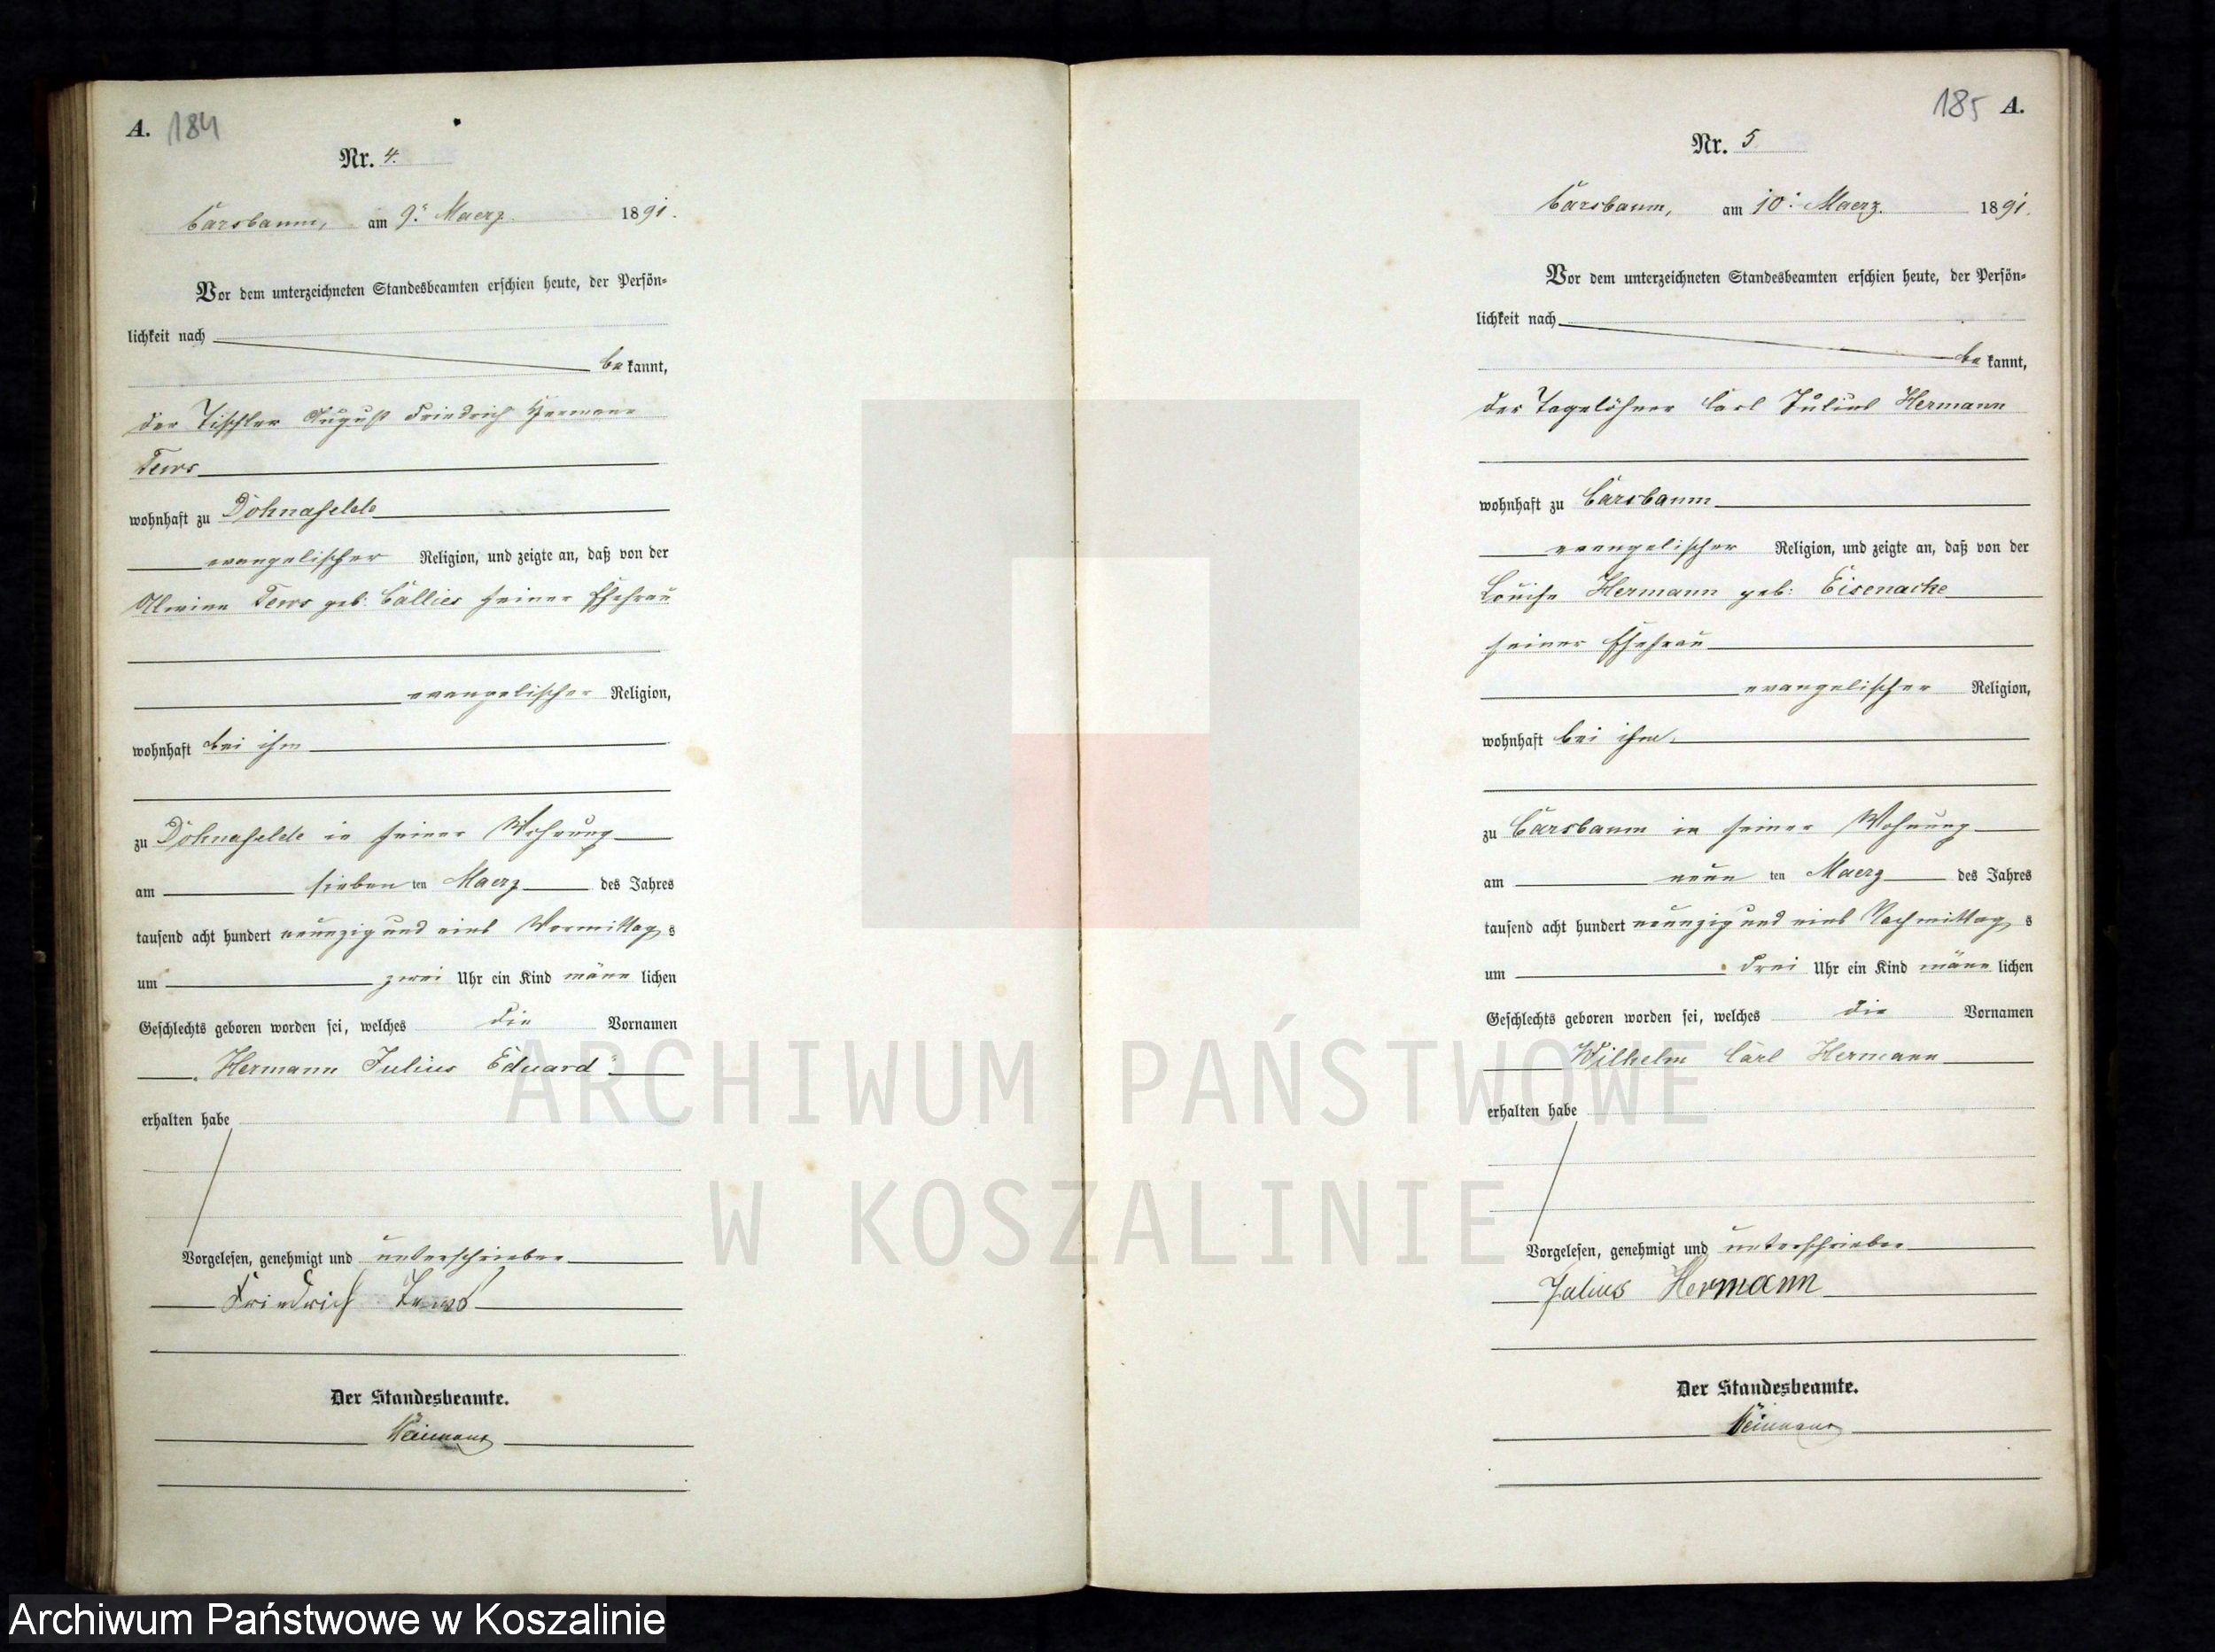 A. 184
Nr. 4.
Carsbaum, am 9. Maerz. 1891.
Vor dem unterzeichneten Standesbeamten erschien heute, der Persön-
lichkeit nach
be kannt,
der Tischler August Friedrich Hermann
Tews
wohnhaft zu Dohnafelde
evangelischer Religion, und zeigte an, daß von der
Alwine Tews geb. Callies seiner Ehefrau
evangelischer Religion,
wohnhaft bei ihm
zu Dohnafelde in seiner Wohnung
am sieben ten Maerz des Jahres
tausend acht hundert neunzig und eins Vormittag s
um zwei Uhr ein Kind männ lichen
Geschlechts geboren worden sei, welches die Vornamen
„Hermann Julius Eduard“
erhalten habe
Vorgelesen, genehmigt und unterschrieben
Friedrich Tews
Der Standesbeamte.
185 A.
Nr. 5
Carsbaum, am 10. Maerz. 1891.
Vor dem unterzeichneten Standesbeamten erschien heute, der Persön-
lichkeit nach
be kannt,
der Tagelöhner Carl Julius Hermann
wohnhaft zu Carsbaum
evangelischer Religion, und zeigte an, daß von der
Louise Hermann geb. Eisenacke
seiner Ehefrau
evangelischer Religion,
wohnhaft bei ihm
zu Carsbaum in seiner Wohnung
am neun ten Maerz des Jahres
tausend acht hundert neunzig und eins Nachmittag s
um drei Uhr ein Kind männ lichen
Geschlechts geboren worden sei, welches die Vornamen
Wilhelm Carl Hermann
erhalten habe
Vorgelesen, genehmigt und unterschrieben
Julius Hermann
Der Standesbeamte.
ARCHIWUM PAŃSTWOWE
W KOSZALINIE
Archiwum Państwowe w Koszalinie